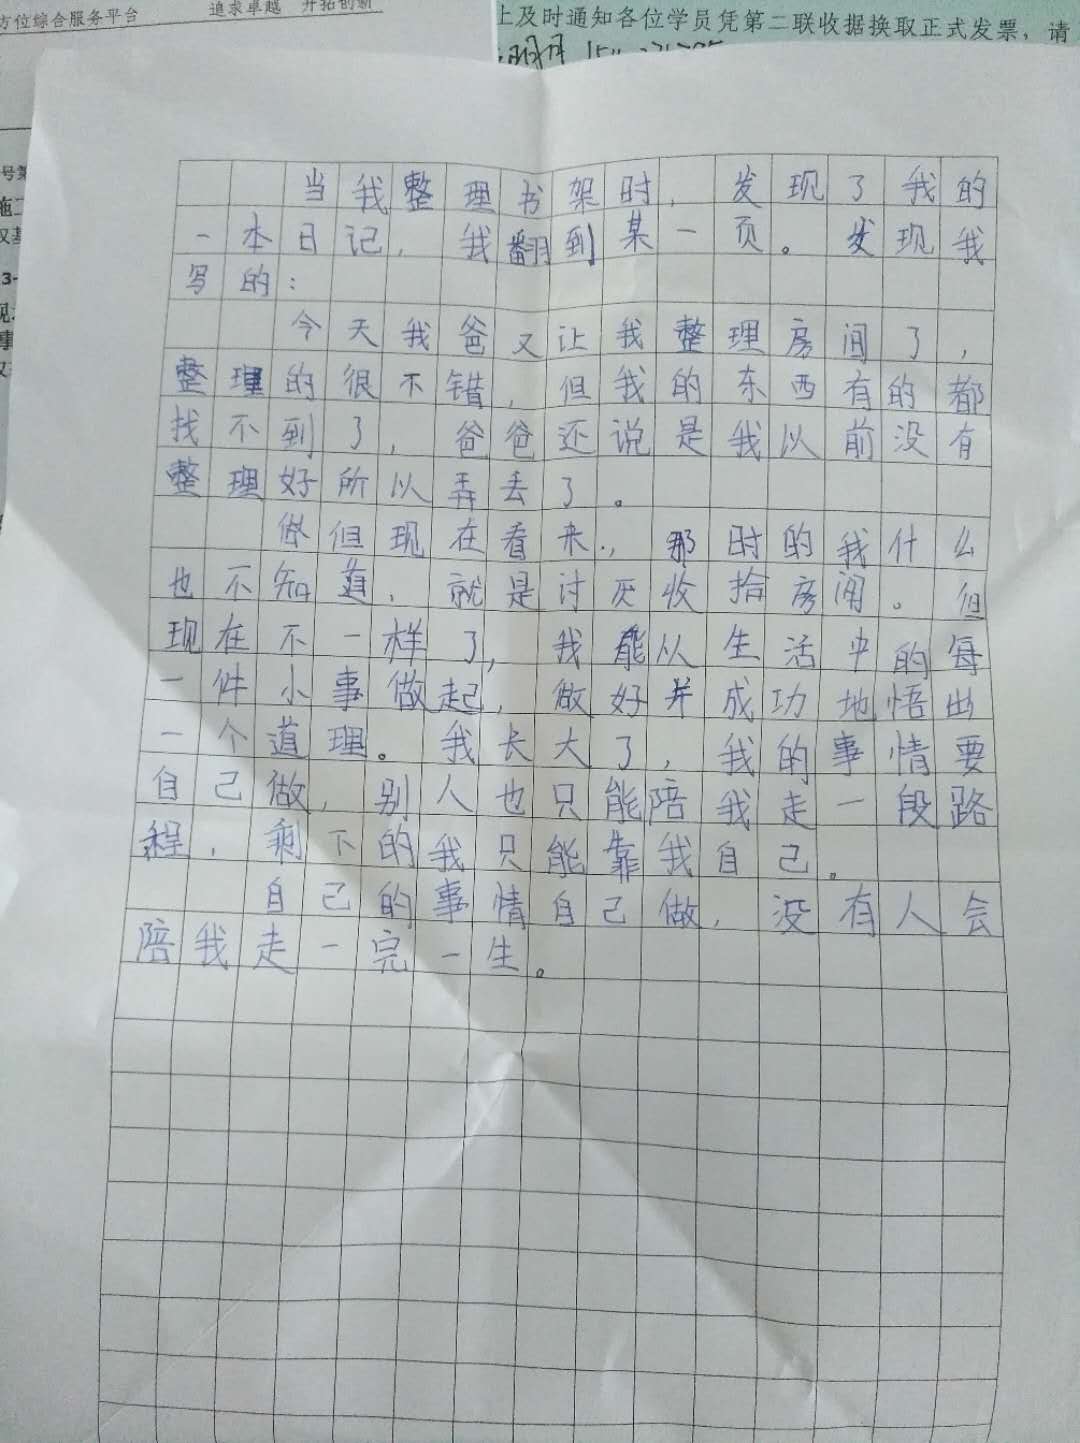 方位综合服务平台 追求卓越 开拓创新
上及时通知各位学员凭第二联收据换取正式发票，请
当我整理书架时，发现了我的
一本日记，我翻到某一页。发现我
写的：
今天我爸又让我整理房间了，
整理的很不错，但我的东西有的都
找不到了，爸爸还说是我以前没有
整理好所以弄丢了。
但现在看来，那时的我什么
也不知道，就是讨厌收拾房间。但
现在不一样了，我能从生活中的每
一件小事做起，做好并成功地悟出
一个道理。我长大了，我的事情要
自己做，别人也只能陪我走一段路
程，剩下的我只能靠我自己。
自己的事情自己做，没有人会
陪我走一完一生。